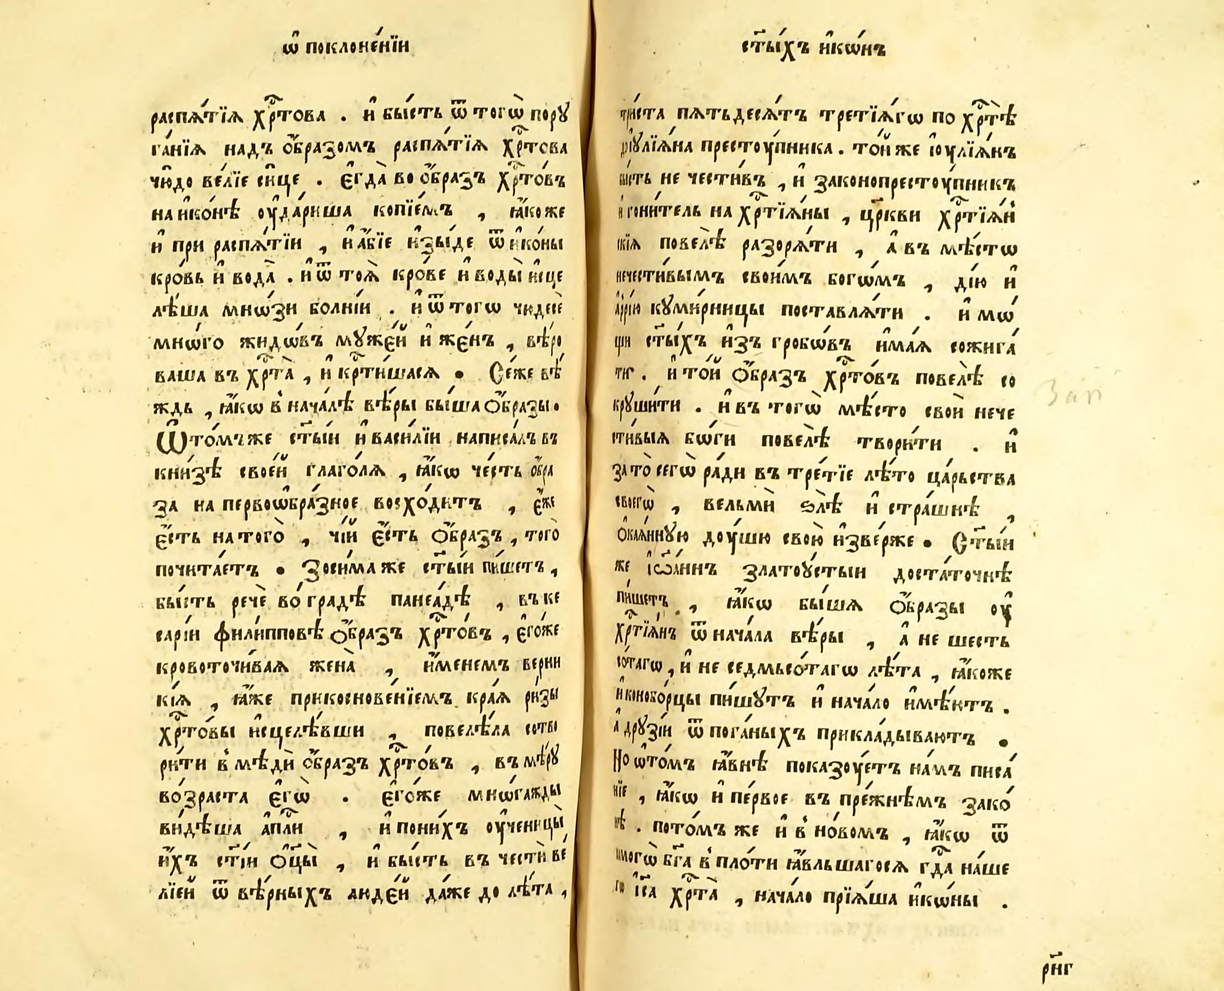 ѡ҆ поклоне́нїи
распѧ́тїѧ хрⷭ҇то́ва . и҆ бы́сть ѿ тогѡ̀ пору
га́нїѧ надъ ѻ҆́бразомъ распѧ́тїѧ хрⷭ҇то́ва
чю́до ве́лїе си́це . є҆гда̀ во ѻ҆́бразъ хрⷭ҇то́въ
на и҆ко́нѣ ᲂу҆да́риша копїе́мъ , ꙗ҆́коже
и҆ при распѧ́тїи , и҆ а҆́бїе и҆зы́де ѿ и҆ко́ны
кро́вь и҆ вода̀ . и҆ ѿ тоѧ̀ кро́ве и҆ воды̀ и҆сце
лѣ́ша мно́зи болні́и . и҆ ѿ тогѡ̀ чюдесѐ
мно́го жидѡ́въ мꙋже́й и҆ же́нъ , вѣ́ро
ваша въ хрⷭ҇та̀ , и҆ кр҇ти́шасѧ • Се́же вѣ́
ждь , ꙗ҆́кѡ в нача́лѣ вѣ́ры бы́ша ѻ҆́бразы •
Ѡ҆ то́мъже ст҃ы́й и҆ васи́лїи написа́лъ въ
кни́зѣ свое́й глаго́лѧ , ꙗ҆́кѡ че́сть ѻ҆́бра
за на первоѻбра́зное восхо́дитъ , є҆́же
є҆́сть на того̀ , чі́й є҆́сть ѻ҆́бразъ , того̀
почита́етъ • Зоси́ма же ст҃ы́й пи́шетъ ,
бы́сть речѐ во гра́дѣ панеа́дѣ , въ ке
сарі́и фили́пповѣ ѻ҆́бразъ хрⷭ҇то́въ , є҆го́же
кровоточи́ваѧ жена̀ , и҆́менемъ верни
кі́ѧ , ꙗ҆́же прикоснове́нїемъ кра́ѧ ри́зы
хрⷭ҇то́вы и҆сцелѣ́вши , повелѣ́ла сотво
ри́ти в мѣ́ди ѻ҆́бразъ хрⷭ҇то́въ , въ мѣ́рꙋ
во́зраста є҆гѡ̀ . є҆го́же мно́гажды
ви́дѣша а҆пⷭ҇ли , и҆ по ни́хъ ᲂу҆ченицы̀
и҆́хъ ст҃і́и ѻ҆ц҃ы̀ , и҆ бы́сть въ че́сти ве
лїей ѿ вѣ́рныхъ люде́й да́же до лѣ́та ,
ст҃ы́хъ и҆кѡ́нъ
три́ста пѧтьдесѧ́тъ тре́тїѧгѡ по хрⷭ҇тѣ̀
до і҆ꙋлїѧ́на престоу́пника . то́й же і҆оулїѧ́нъ
бы́сть не чести́въ , и҆ законопрестоу́пникъ
и҆ гони́тель на хрⷭ҇тїѧ́ны , цр҃кви хрⷭ҇тїѧ́н
скїѧ повелѣ̀ разорѧ́ти , а҆ въ мѣ́стѡ
нечести́вымъ свои́мъ богѡ́мъ , ді́ю и҆
а҆рі́ю кꙋми́рницы поставлѧ́ти . и҆ мо́
щи ст҃ы́хъ и҆зъ гробѡ́въ и҆ма́ѧ сожига́
ти . и҆ то́й ѻ҆́бразъ хрⷭ҇то́въ повелѣ̀ со
крꙋши́ти . и҆ въ того̀ мѣ́сто свои́ нече
сти́выѧ бо́ги повелѣ̀ твори́ти . и҆
за то̀ сего̀ ра́ди въ тре́тїе лѣ́то ца́рьства
своегѡ̀ , вельмѝ ѕлѣ̀ и҆ стра́шнѣ ,
ѻ҆каѧ́нную доу́шю свою̀ и҆зве́рже • Ст҃ы́й
же і҆ѡа́ннъ златоу́стыи доста́точнѣ
пи́шетъ , ꙗ҆́кѡ бы́шѧ ѻ҆́бразы ᲂу҆
хрⷭ҇тїѧ́нъ ѿ нача́ла вѣ́ры , а҆ не ше́сть
со́тагѡ , и҆ не се́дмьсо́тагѡ лѣ́та , ꙗ҆́коже
и҆конобо́рцы пи́шꙋтъ и҆ нача́ло и҆мѣ́ютъ .
а҆ дрꙋзі́и ѿ пога́ныхъ прикла́дываютъ •
Но ѡ҆ то́мъ ꙗ҆́внѣ показоу́етъ на́мъ писа́
нїе , ꙗ҆́кѡ и҆ пе́рвое въ пре́жнѣмъ зако́
нѣ . пото́мъ же и҆ в но́вомъ , ꙗ҆́кѡ ѿ
самогѡ̀ бг҃а в пло́ти ꙗ҆́вльшагосѧ гдⷭ҇а на́ше
го і҆с҃а хрⷭ҇та̀ , нача́ло прїѧ́ша и҆кѡ́ны .
рн҃г